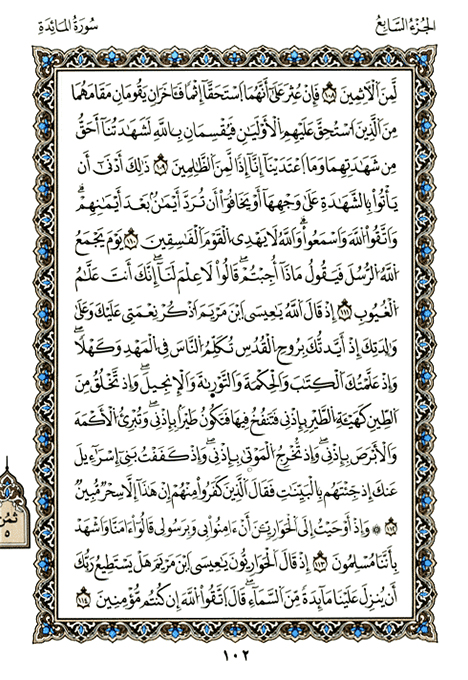 الجزء السابع
سورة المائدة
لَّمِنَ ٱلْأٓثِمِينَ ١٠٨ فَإِنْ عُثِرَ عَلَىٰٓ أَنَّهُمَا ٱسْتَحَقَّآ إِثْمًا فَـَٔاخَرَانِ يَقُومَانِ مَقَامَهُمَا
مِنَ ٱلَّذِينَ ٱسْتُحِقَّ عَلَيْهِمِ ٱلْأَوْلَيَٰنِ فَيُقْسِمَانِ بِٱللَّهِ لَشَهَٰدَتُنَآ أَحَقُّ
مِن شَهَٰدَتِهِمَا وَمَا ٱعْتَدَيْنَآ إِنَّآ إِذًا لَّمِنَ ٱلظَّٰلِمِينَ ١٠٩ ذَٰلِكَ أَدْنَىٰٓ أَن
يَأْتُوا۟ بِٱلشَّهَٰدَةِ عَلَىٰ وَجْهِهَآ أَوْ يَخَافُوٓا۟ أَن تُرَدَّ أَيْمَٰنٌۢ بَعْدَ أَيْمَٰنِهِمْ ۗ
وَٱتَّقُوا۟ ٱللَّهَ وَٱسْمَعُوا۟ ۗ وَٱللَّهُ لَا يَهْدِى ٱلْقَوْمَ ٱلْفَٰسِقِينَ ١١٠ يَوْمَ يَجْمَعُ
ٱللَّهُ ٱلرُّسُلَ فَيَقُولُ مَاذَآ أُجِبْتُمْ ۖ قَالُوا۟ لَا عِلْمَ لَنَآ ۖ إِنَّكَ أَنتَ عَلَّٰمُ
ٱلْغُيُوبِ ١١١ إِذْ قَالَ ٱللَّهُ يَٰعِيسَى ٱبْنَ مَرْيَمَ ٱذْكُرْ نِعْمَتِى عَلَيْكَ وَعَلَىٰ
وَٰلِدَتِكَ إِذْ أَيَّدتُّكَ بِرُوحِ ٱلْقُدُسِ تُكَلِّمُ ٱلنَّاسَ فِى ٱلْمَهْدِ وَكَهْلًا ۖ
وَإِذْ عَلَّمْتُكَ ٱلْكِتَٰبَ وَٱلْحِكْمَةَ وَٱلتَّوْرَىٰةَ وَٱلْإِنجِيلَ ۖ وَإِذْ تَخْلُقُ مِنَ
ٱلطِّينِ كَهَيْـَٔةِ ٱلطَّيْرِ بِإِذْنِى فَتَنفُخُ فِيهَا فَتَكُونُ طَيْرًۢا بِإِذْنِى ۖ وَتُبْرِئُ ٱلْأَكْمَهَ
وَٱلْأَبْرَصَ بِإِذْنِى ۖ وَإِذْ تُخْرِجُ ٱلْمَوْتَىٰ بِإِذْنِى ۖ وَإِذْ كَفَفْتُ بَنِىٓ إِسْرَٰٓءِيلَ
عَنكَ إِذْ جِئْتَهُم بِٱلْبَيِّنَٰتِ فَقَالَ ٱلَّذِينَ كَفَرُوا۟ مِنْهُمْ إِنْ هَٰذَآ إِلَّا سِحْرٌ مُّبِينٌ
١١٢ ۞ وَإِذْ أَوْحَيْتُ إِلَى ٱلْحَوَارِيِّـۧنَ أَنْ ءَامِنُوا۟ بِى وَبِرَسُولِى قَالُوٓا۟ ءَامَنَّا وَٱشْهَدْ
بِأَنَّنَا مُسْلِمُونَ ١١٣ إِذْ قَالَ ٱلْحَوَارِيُّونَ يَٰعِيسَى ٱبْنَ مَرْيَمَ هَلْ يَسْتَطِيعُ رَبُّكَ
أَن يُنَزِّلَ عَلَيْنَا مَآئِدَةً مِّنَ ٱلسَّمَآءِ ۖ قَالَ ٱتَّقُوا۟ ٱللَّهَ إِن كُنتُم مُّؤْمِنِينَ ١١٤
ثمن
٥
١٠٢